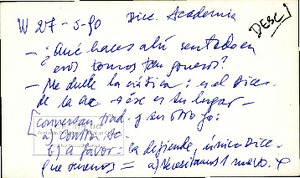 W 27-5-90 Dicc. Academia
DESC
- ¿Qué haces ahí sentado en
esos tomos tan gruesos?
- Me duele la crítica: es el Dicc.
de la Ac - ese es su lugar -
conversan trad. y su otro yo:
a) contra
b) a favor: la defiende, único Dicc.
que tenemos = a) necesitamos 1 nuevo.